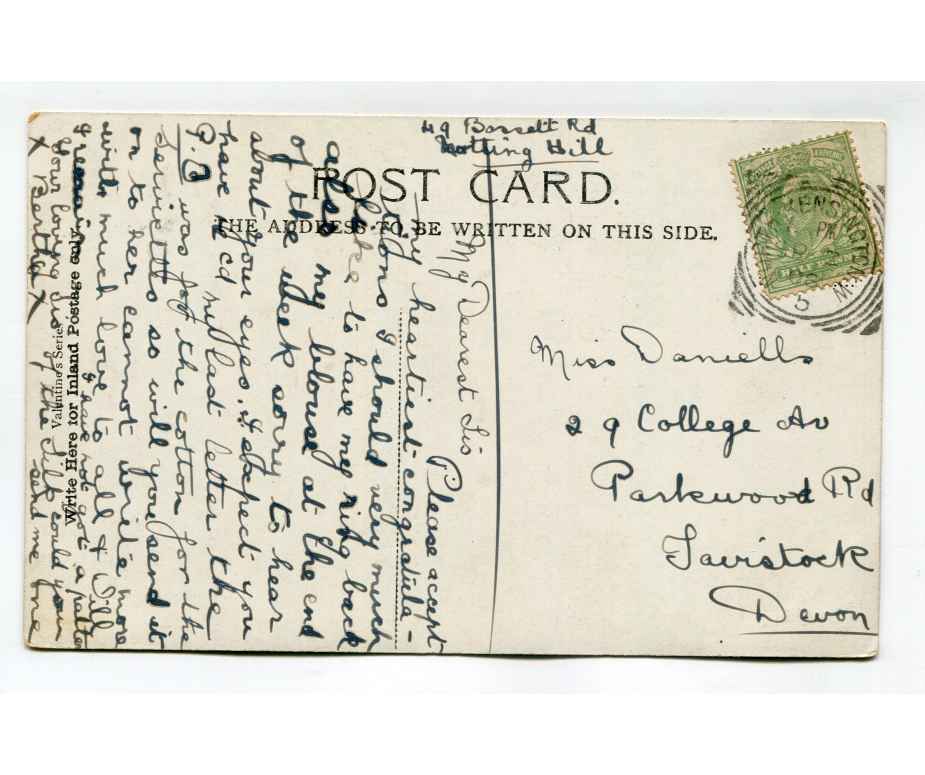 49 Bassett Rd
Notting Hill
POST CARD.
THE ADDRESS TO BE WRITTEN ON THIS SIDE.
My Dearest Sis
Please accept
my heartiest congratula-
tions I should very much
like to have my ring back
also my blouse at the end
of the week sorry to hear
about your eyes. I expect you
have recd my last letter the
P.O was for the cotton for the
serviette so will you send it
on to her cannot write more
with much love to all &
I have not got a
your loving sis of the silk could you
x Bertha x send me one
Valentine's Series
Write Here for Inland Postage only.
Miss Daniells
29 College Av
Parkwood Rd
Tavistock
Devon
KENSINGTON
PM
5